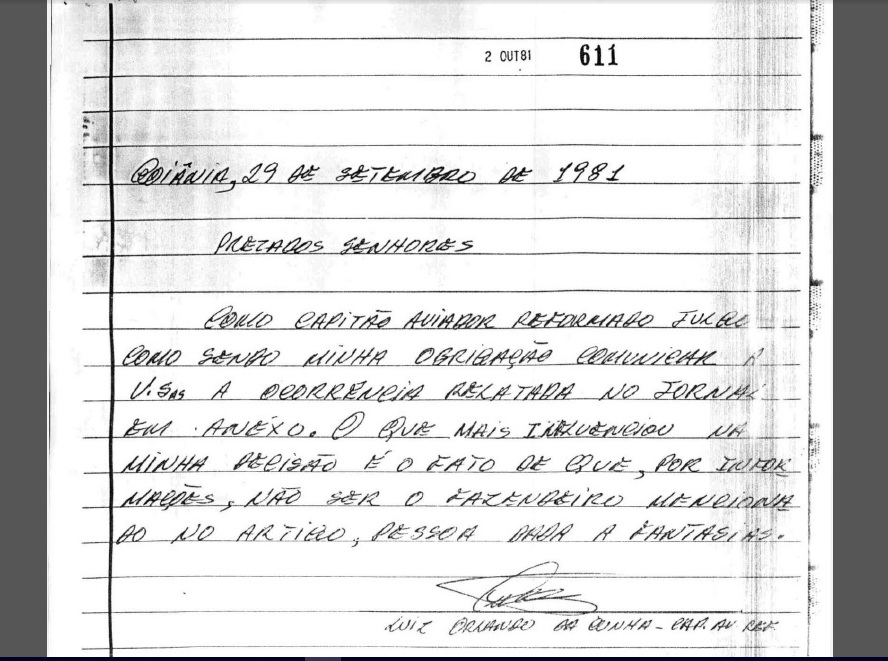 2 OUT81 611
GOIÂNIA, 29 DE SETEMBRO DE 1981
PREZADOS SENHORES
COMO CAPITÃO AVIADOR REFORMADO JULGO
COMO SENDO MINHA OBRIGAÇÃO COMUNICAR A
V.Sas A OCORRÊNCIA RELATADA NO JORNAL
EM ANEXO. O QUE MAIS INFLUENCIOU NA
MINHA DECISÃO É O FATO DE QUE, POR INFOR
MAÇÕES, NÃO SER O FAZENDEIRO MENCIONA
DO NO ARTIGO, PESSOA DADA A FANTASIAS.
LUIZ ORLANDO DA CUNHA - CAP. AV. REF.